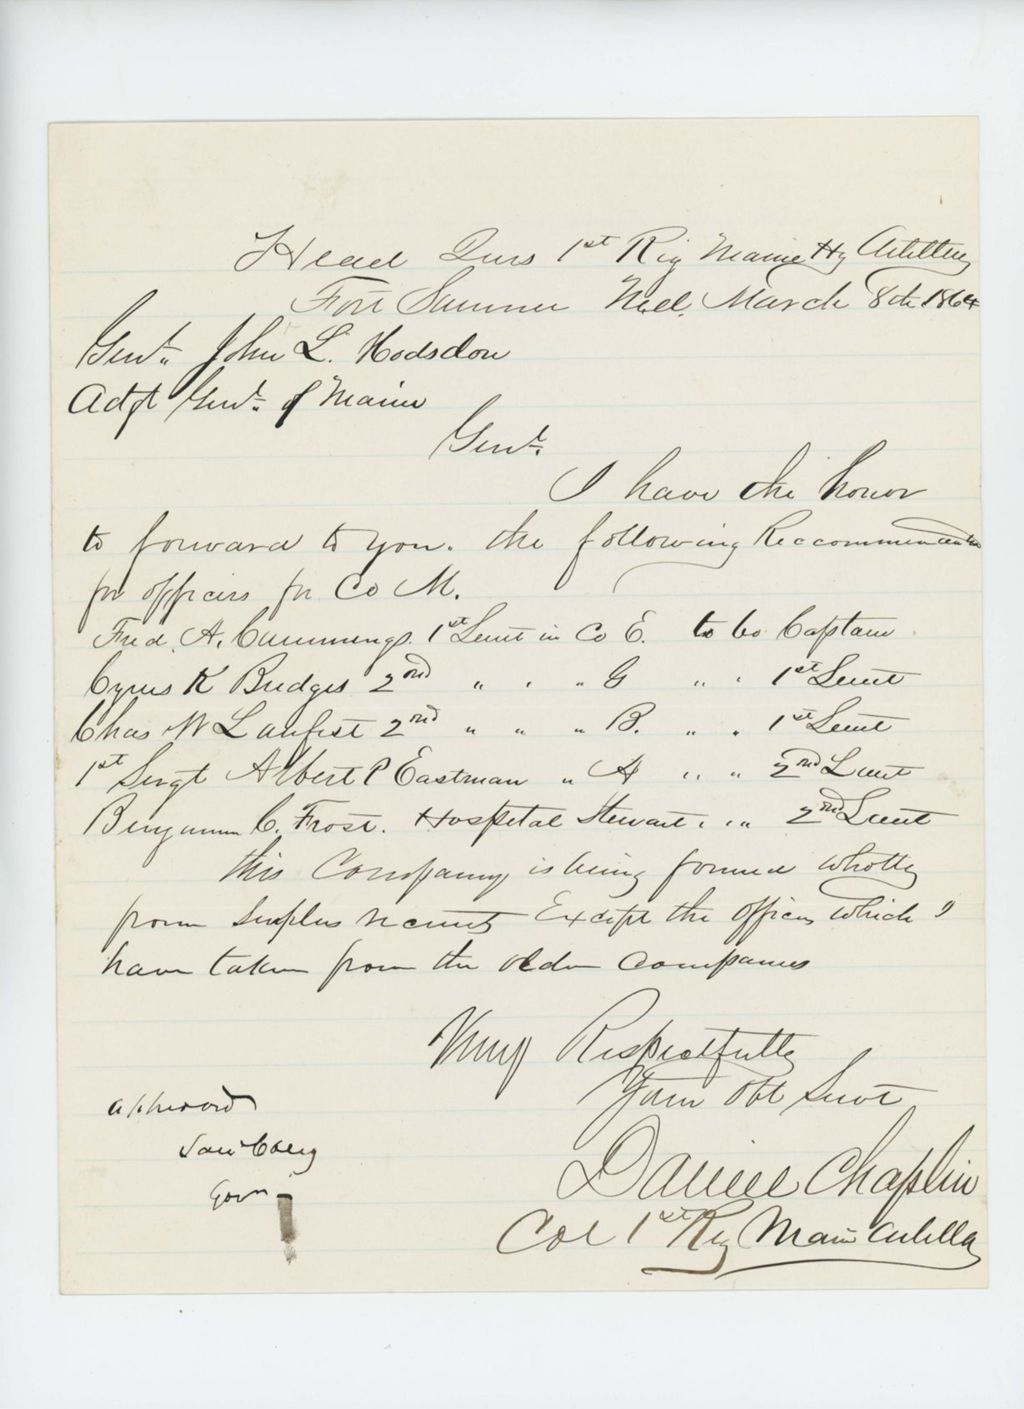 Head Qurs 1st Rig Maine Hy Artillery
Fort Sumner Md. March 8th 1864
Genl. John L. Hodsdon
Adjt Genl. of Maine
Genl.
I have the honor
to forward to you. the following Reccommendation
for officers for Co M.
Fred. A. Cummings. 1st Leiut in Co E. to be Captain
Cyrus K Bridges 2nd " " " G " " 1st Leiut
Chas W 2nd " " " B. " " 1st Leiut
1st Sergt Albert P Eastman " A " " 2nd Leiut
Benjamin C. Frost. Hospital Steward. " " 2nd Leiut
this Company is being formed wholly
from Surplus recruits Except the Officers which I
have taken from the older companies
Very Respectfully
Your Obt Servt
Daniel Chaplin
Col 1st Reg Maine Artilla
approved
Saml Cony
Govr